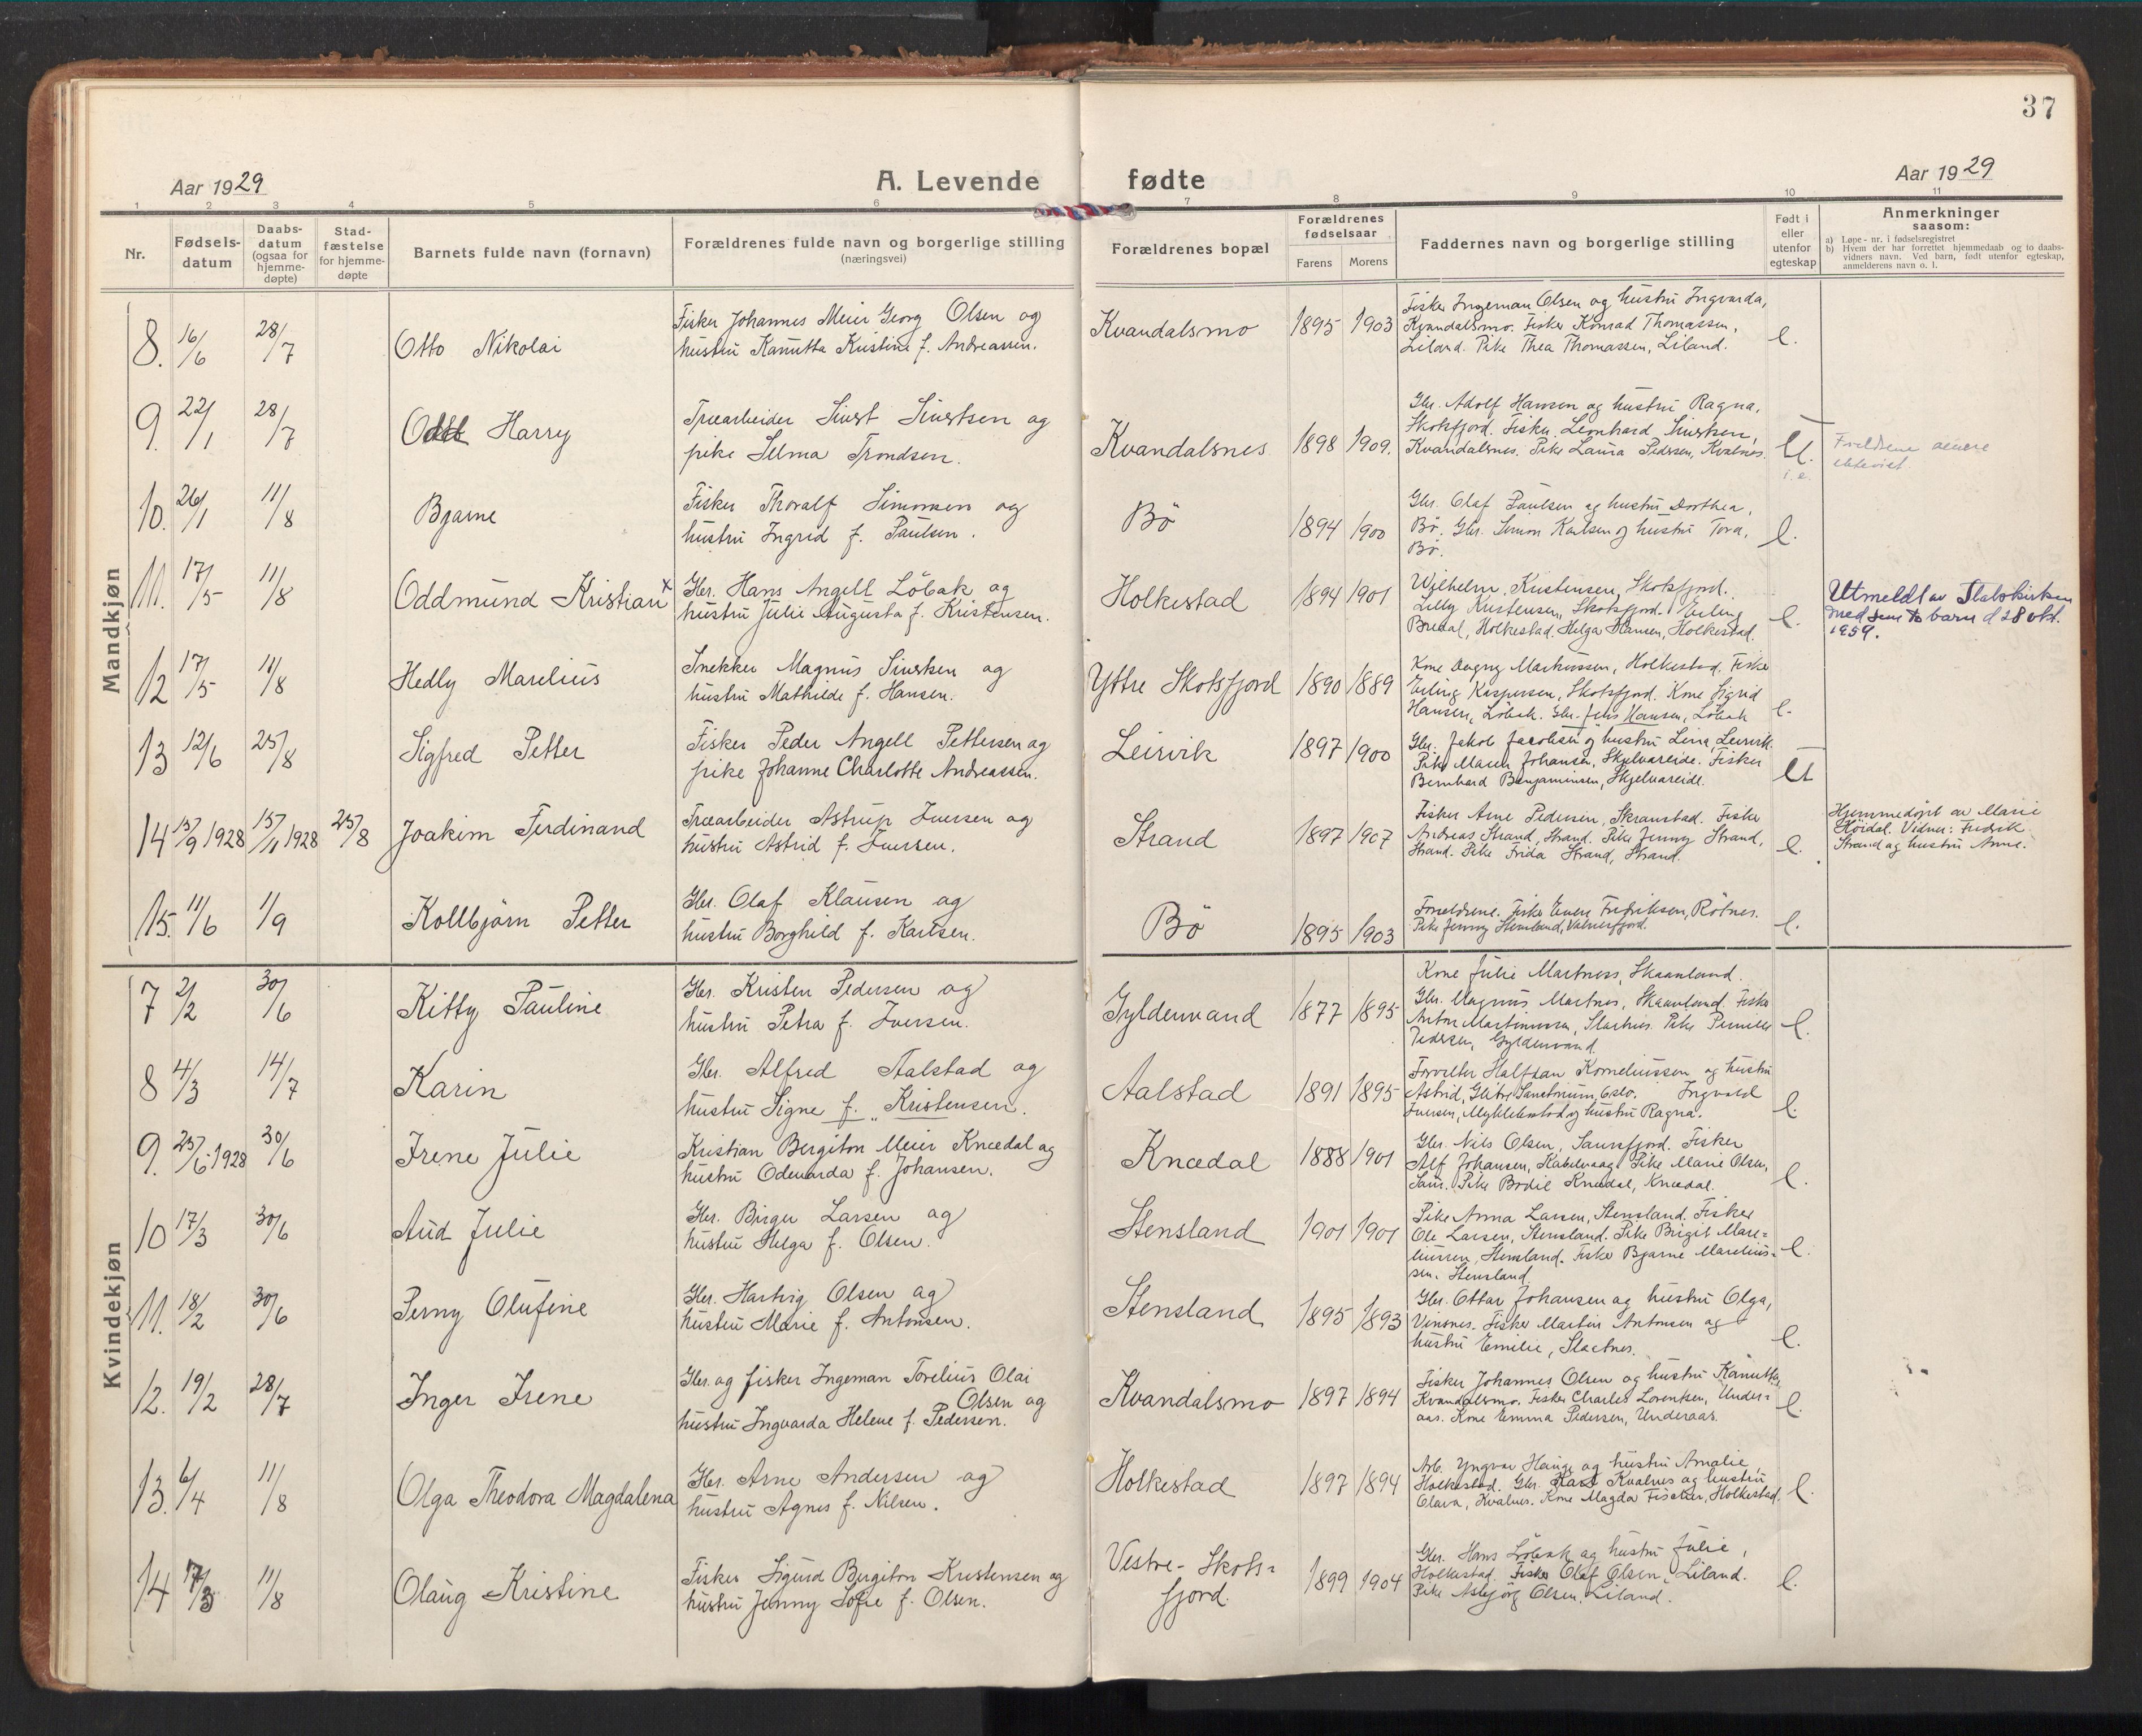 37
Aar 1929
A. Levende fødte
Aar 1929
1 2 3 4 5 6 7 8 9 10 11
Nr.
Fødsels-
datum
Daabs-
datum
(ogsaa for
hjemme-
døpte)
Stad-
fæstelse
for hjemme-
døpte
Barnets fulde navn (fornavn)
Forældrenes fulde navn og borgerlige stilling
(næringsvei)
Forældrenes bopæl
Forældrenes
fødselsaar
Farens Morens
Faddernes navn og borgerlige stilling
Født i
eller
utenfor
egteskap
Anmerkninger
saasom:
a) Løpe-nr. i fødselsregistret
b) Hvem der har forrettet hjemmedaab og to daabs-
vidners navn. Ved barn, født utenfor egteskap,
anmelderens navn o. l.
Mandkjøn
8. 16/6 28/7 Otto Nikolai
Fisker Johannes Meier Georg Olsen og
hustru Kanutta Kristine f. Andreassen.
Kvandalsmo 1895 1903
Fisker Ingeman Olsen og hustru Ingvarda,
Kvandalsmo. Fisker Konrad Thomassen,
Liland. Pike Thea Thomassen, Liland.
e.
9. 22/1 28/7 Odd Harry
Træarbeider Sivert Sivertsen og
pike Selma Trondsen.
Kvandalsnes 1898 1909.
Gbr. Adolf Hansen og hustru Ragna,
Skotsfjord. Fisker Leonhard Sivertsen,
Kvandalsnes. Pike Laura Pedersen, Kvalnes.
U.
i.e.
Foreldrene senere
ekteviet
10. 26/1 11/8 Bjarne
Fisker Thoralf Simonsen og
hustru Ingrid f. Paulsen.
Bö 1894 1900
Gbr. Olaf Paulsen og hustru Dorthea,
Bö. Gbr. Simon Karlsen og hustru Tora,
Bö.
e.
11. 17/5 11/8 Oddmund Kristian x
Gbr. Hans Angell Löbak og
hustru Julie Augusta f. Kristensen.
Holkestad 1894 1901
Wilhelm Kristensen, Skotsfjord.
Lilly Kristensen, Skotsfjord. Erling
Bredal, Holkestad. Helga Hansen, Holkestad.
e.
Utmeldt av Statskirken
med sine to barn d 28 okt.
1959.
12 17/5 11/8 Hedly Marelius
Snekker Magnus Sivertsen og
hustru Mathilde f. Hansen.
Yttre Skotsfjord 1890 1889
Kone Dagny Markussen, Holkestad. Fisker
Erling Kaspersen, Skotsfjord. Kone Sigrid
Hansen, Löbak. Gbr. Jens Hansen, Löbak
e.
13 12/6 25/8 Sigfred Petter
Fisker Peder Angell Pettersen og
pike Johanne Charlotte Andreassen.
Leirvik 1897 1900
Gbr. Jakob Jacobsen og hustru Lina, Leirvik.
Pike Maren Johansen, Skjelvareide. Fisker
Bernhard Benjaminsen, Skjelvareide.
U
14 15/9 1928 15/11 1928 25/8 Joakim Ferdinand
Træarbeider Astrup Iversen og
hustru Astrid f. Iversen.
Strand 1897 1907
Fisker Arne Pedersen, Skranstad. Fisker
Andreas Strand, Strand. Pike Jenny Strand,
Strand. Pike Frida Strand, Strand.
e.
Hjemmedøpt av Marie
Höidal. Vidner: Fredrik
Strand og hustru Anne.
15. 11/6 1/9 Kollbjörn Petter
Gbr. Olaf Klausen og
hustru Borghild f. Karlsen.
Bö 1895 1903
Forældrene. Fisker Fredriksen, Rötnes.
Pike Jenny Stensland, Valnesfjord.
e.
Kvindekjøn
7 2/2 30/6 Kitty Pauline
Gbr. Kristen Pedersen og
hustru Petra f. Iversen.
Gyldenvand 1877 1895
Kone Julie Martness, Skaanland.
Gbr. Magnus Martnes, Skaanland. Fisker
Anton Martinussen, Slaetnes. Pike Pernille
Pedersen, Gyldenvand.
e.
8 4/3 14/7 Karin
Gbr. Alfred Aalstad og
hustru Signe f. Kristensen.
Aalstad 1891 1895
Forvalter Halfdan Korneliussen og hustru
Astrid, Glitre Sanatorium, Oslo. Ingvald
Iversen, Myklebostad og hustru Ragna.
e.
9. 25/6 1928 30/6 Irene Julie
Kristian Bergiton Meier Knædal og
hustru Odevarda f. Johansen.
Knædal 1888 1901
Gbr. Nils Olsen, Saursfjord. Fisker
Alf Johansen, Kabelvaag. Pike Marie Olsen,
Saur. Pike Bodil Knædal, Knædal.
e.
10 17/3 30/6 Aud Julie
Gbr. Birger Larsen og
hustru Helga f. Olsen.
Stensland 1901 1901
Pike Anna Larsen, Stensland. Fisker
Ole Larsen, Stensland. Pike Birgit Mare=
liussen, Stensland. Fisker Bjarne Marelius=
sen. Stensland.
e.
11. 18/2 30/6 Perny Olufine
Gbr. Hartvig Olsen og
hustru Marie f. Antonsen.
Stensland 1895 1893
Gbr. Ottar Johansen og hustru Olga,
Vinsnes. Fisker Martin Antonsen og
hustru Emilie, Slaetnes.
e.
12. 19/2 28/7 Inger Irene
Gbr. og fisker Ingeman Torelius Olai
Olsen og
hustru Ingvarda Helene f. Pedersen.
Kvandalsmo 1897 1894
Fisker Johannes Olsen og hustru Kanutta,
Kvandalsmo. Fisker Charles Lorentsen, Under=
aas. Kone Emma Pedersen, Underaas.
e.
13. 6/4 11/8 Olga Theodora Magdalena
Gbr. Arne Andersen og
hustru Agnes f. Nilsen.
Holkestad 1897 1894
Arb. Yngvar Hauge og hustru Amalie,
Holkestad. Gbr. Karl Kvalnes og hustru
Olava, Kvalnes. Kone Magda Fischer, Holkestad.
e.
14 17/3 11/8 Olaug Kristine
Fisker Sigurd Bergiton Kristensen og
hustru Jenny Sofie f. Olsen.
Vestre-Skots=
fjord. 1899 1904
Gbr. Hans Löbak og hustru Julie,
Holkestad. Fisker Olaf Olsen, Liland.
Pike Asbjörg Olsen, Liland.
e.